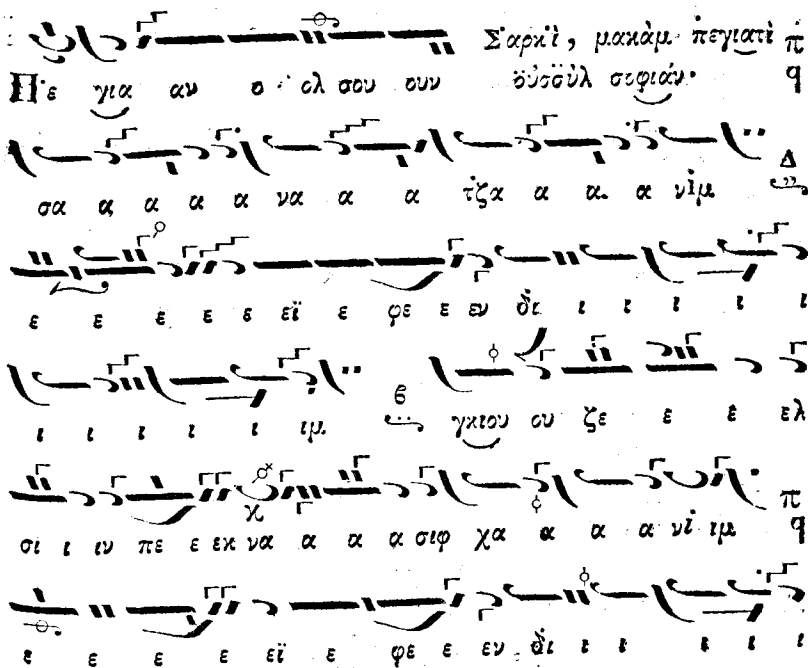 Σαρκὶ, μακὰμ πεγιατὶ π
Πε για αν ο ολ σου ουν οὐσσοὺλ σοφιάν. q
Δ
σα α α α α να α α τζα α α α νὶμ
ε ε ε ε ε εϊ ε φε ε εν δι ι ι ι ι ι
ϐ
ι ι ι ι ι ιμ γκιου ου ζε ε ε ελ
π
σι ι ιν πε ε εκ να α α α σιφ χα α α α νὶ ιμ q
ε ε ε ε εϊ ε φε ε εν δι ι ι ι ι ι